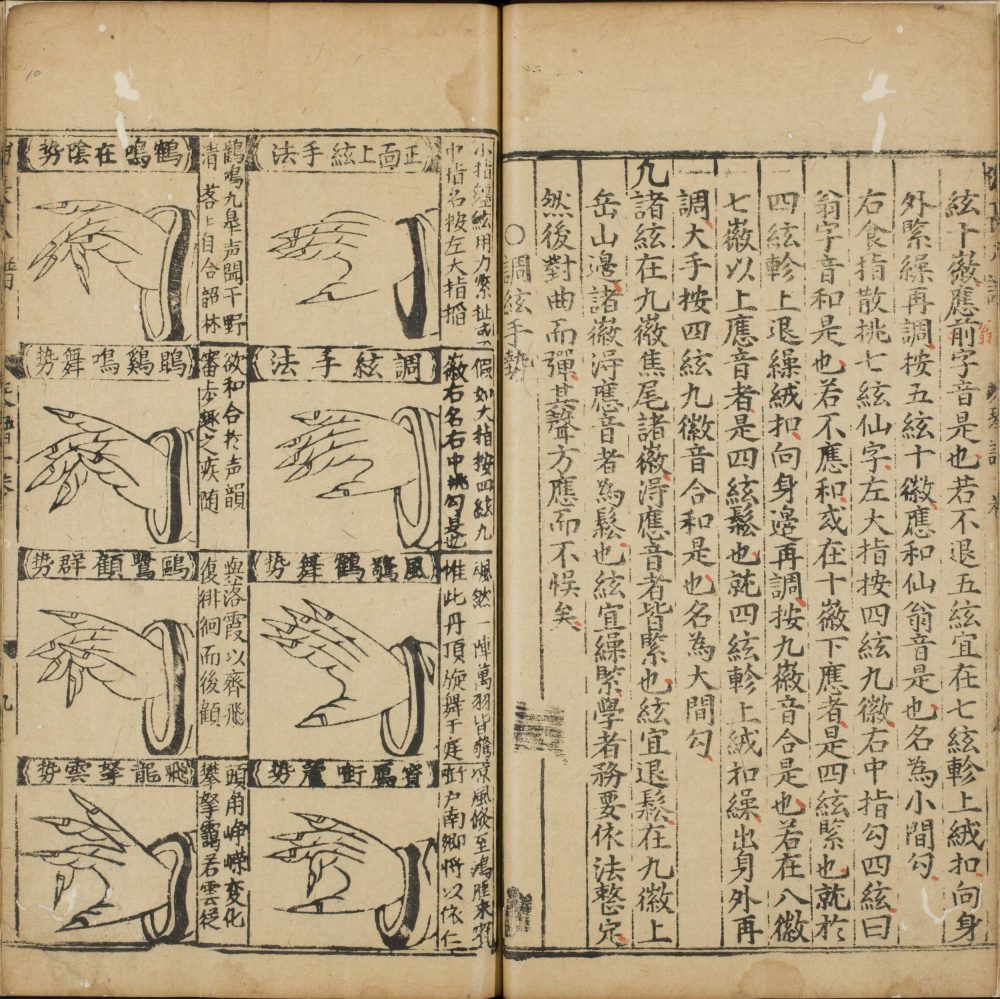 絃十徽應前字音是也若不退五絃宜在七絃軫上絨扣向身
外緊繰再調按五絃十徽應和仙翁音是也名為小間勾
右食指散挑七絃仙字左大指按四絃九徽右中指勾四絃曰
翁字音和是也若不應和或在十徽下應者是四絃緊也就於
四絃軫上退繰絨扣向身邊再調按九徽音合是也若在八徽
七徽以上應音者是四絃鬆也就四絃軫上絨扣繰出身外再
調大手按四絃九徽音合和是也名為大間勾
九諸絃在九徽焦尾諸徽淂應音者皆緊也絃宜退鬆在九徽上
岳山邊諸徽淂應音者為鬆也絃宜繰緊學者務要依法整定
然後對曲而彈其聲方應而不悞矣
○調絃手勢
小指纏絃用力緊扯
中指名按左大指搯
正面上絃手法
鶴鳴九皐声聞于野
清 落上自合韶林
鶴鳴在陰勢
假如大指按四絃九
徽右名右中挑勾是也
調絃手法
欲和合於声韻
審步趨之疾随
鵾鷄鳴舞勢
颯然一陣萬羽皆
惟此丹頂旋舞于庭
風驚鶴舞勢
與落霞以齊飛
復徘徊而後顧
鷗鷺顧群勢
凉風倏至鴻雁来賔
啣户南鄉将以依仁
賔鴈啣蘆勢
頭角崢嶸变化
攀拏靄若雲從
飛龍拏雲勢